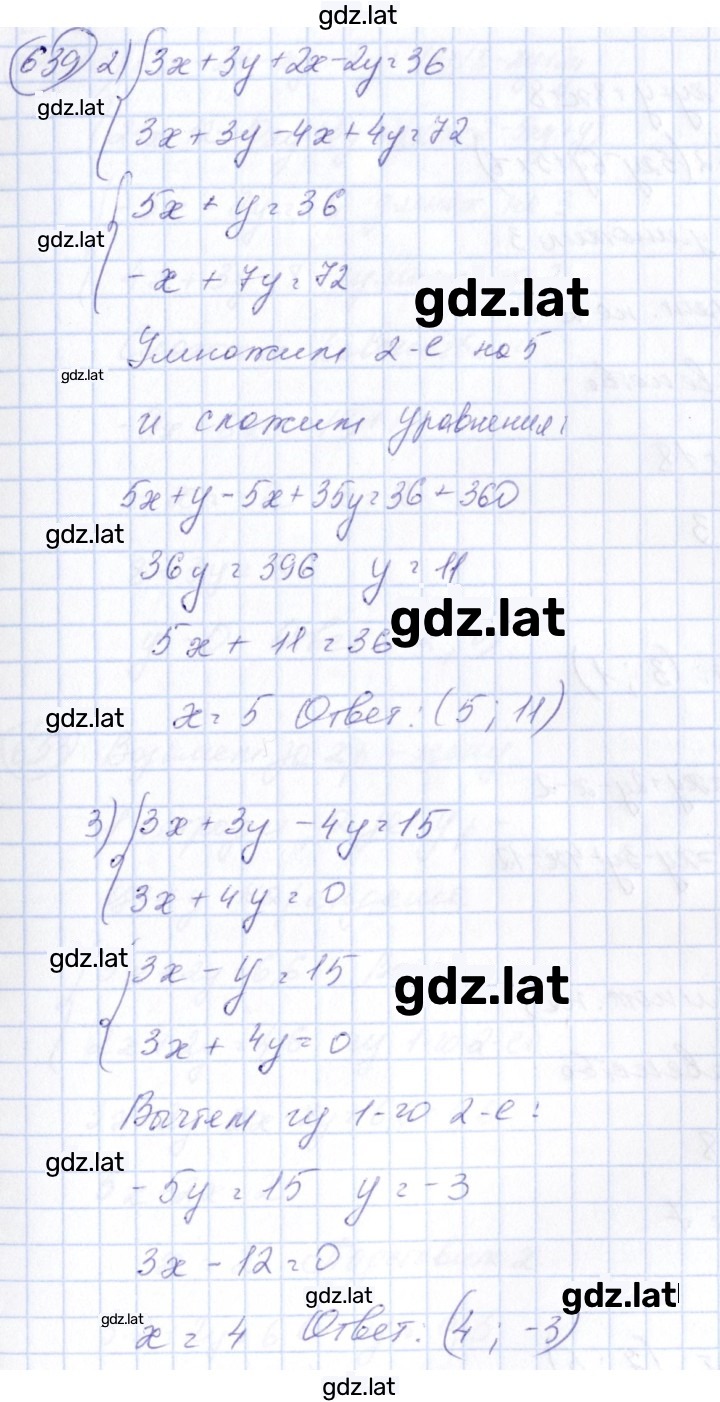 gdz.lat
639 2) 3x+3y+2x-2y=36
gdz.lat
3x+3y-4x+4y=72
5x+y=36
gdz.lat
-x+7y=72
gdz.lat
Умножим 2-е на 5
gdz.lat
и сложим уравнения:
5x+y-5x+35y=36+360
gdz.lat
36y=396 y=11
gdz.lat
5x+11=36
gdz.lat
x=5 Ответ: (5; 11)
3) 3x+3y-4y=15
3x+4y=0
gdz.lat
3x-y=15
gdz.lat
3x+4y=0
Вычтем из 1-го 2-е:
gdz.lat
-5y=15 y=-3
3x-12=0
gdz.lat
gdz.lat
gdz.lat
x=4 Ответ: (4; -3)
gdz.lat